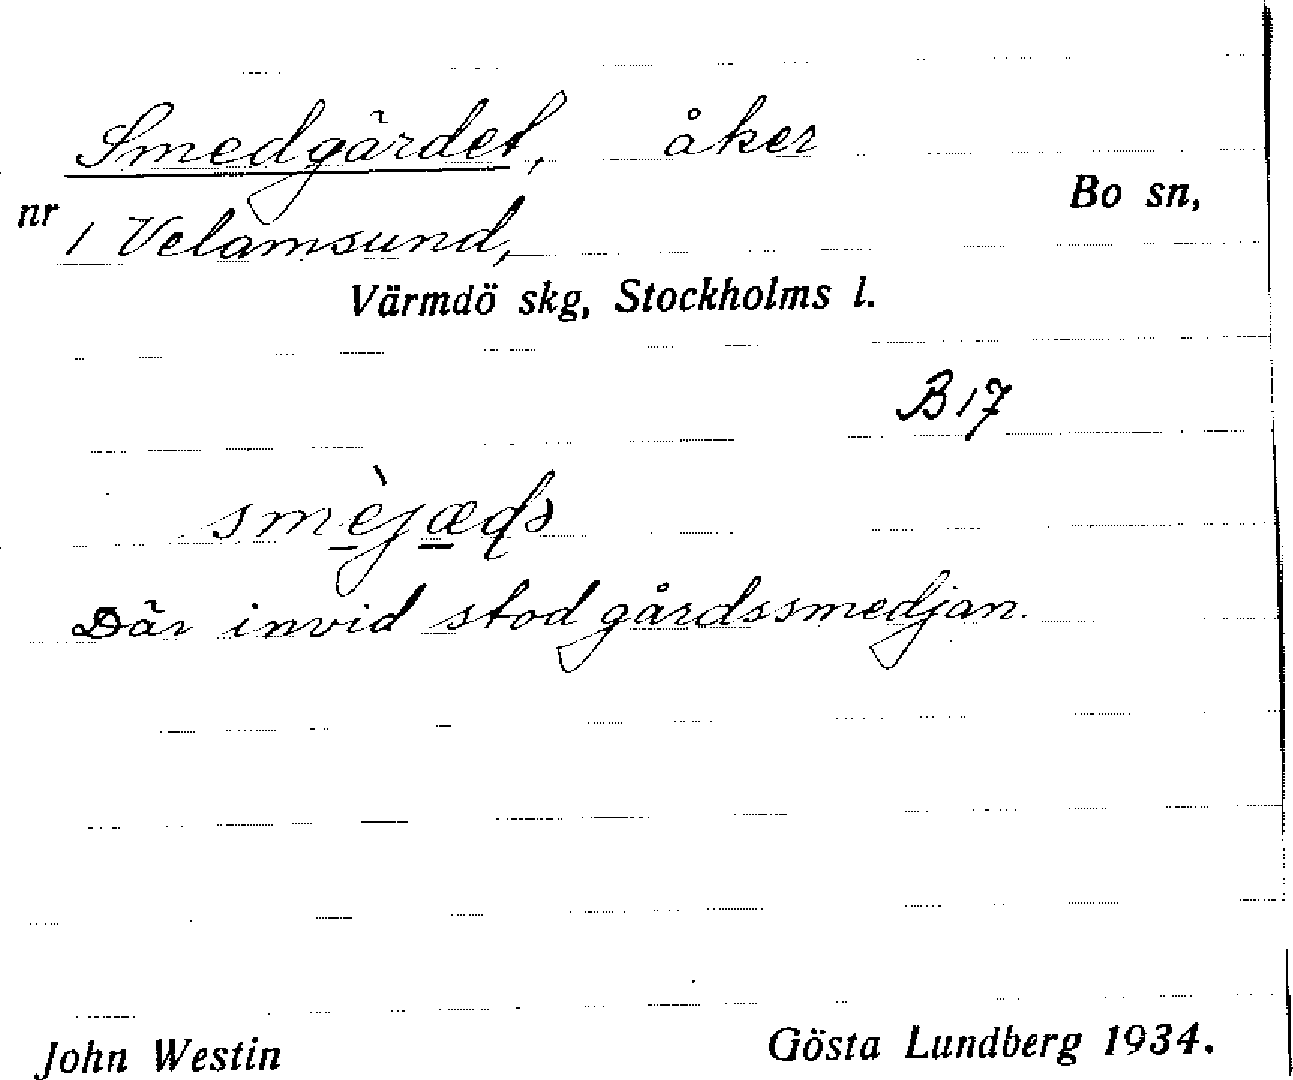 Smedgärdet, åker
Bo sn,
nr 1 Velamsund,
Värmdö skg, Stockholms l.
B 17
Där invid stod gårdssmedjan.
John Westin
Gösta Lundberg 1934.